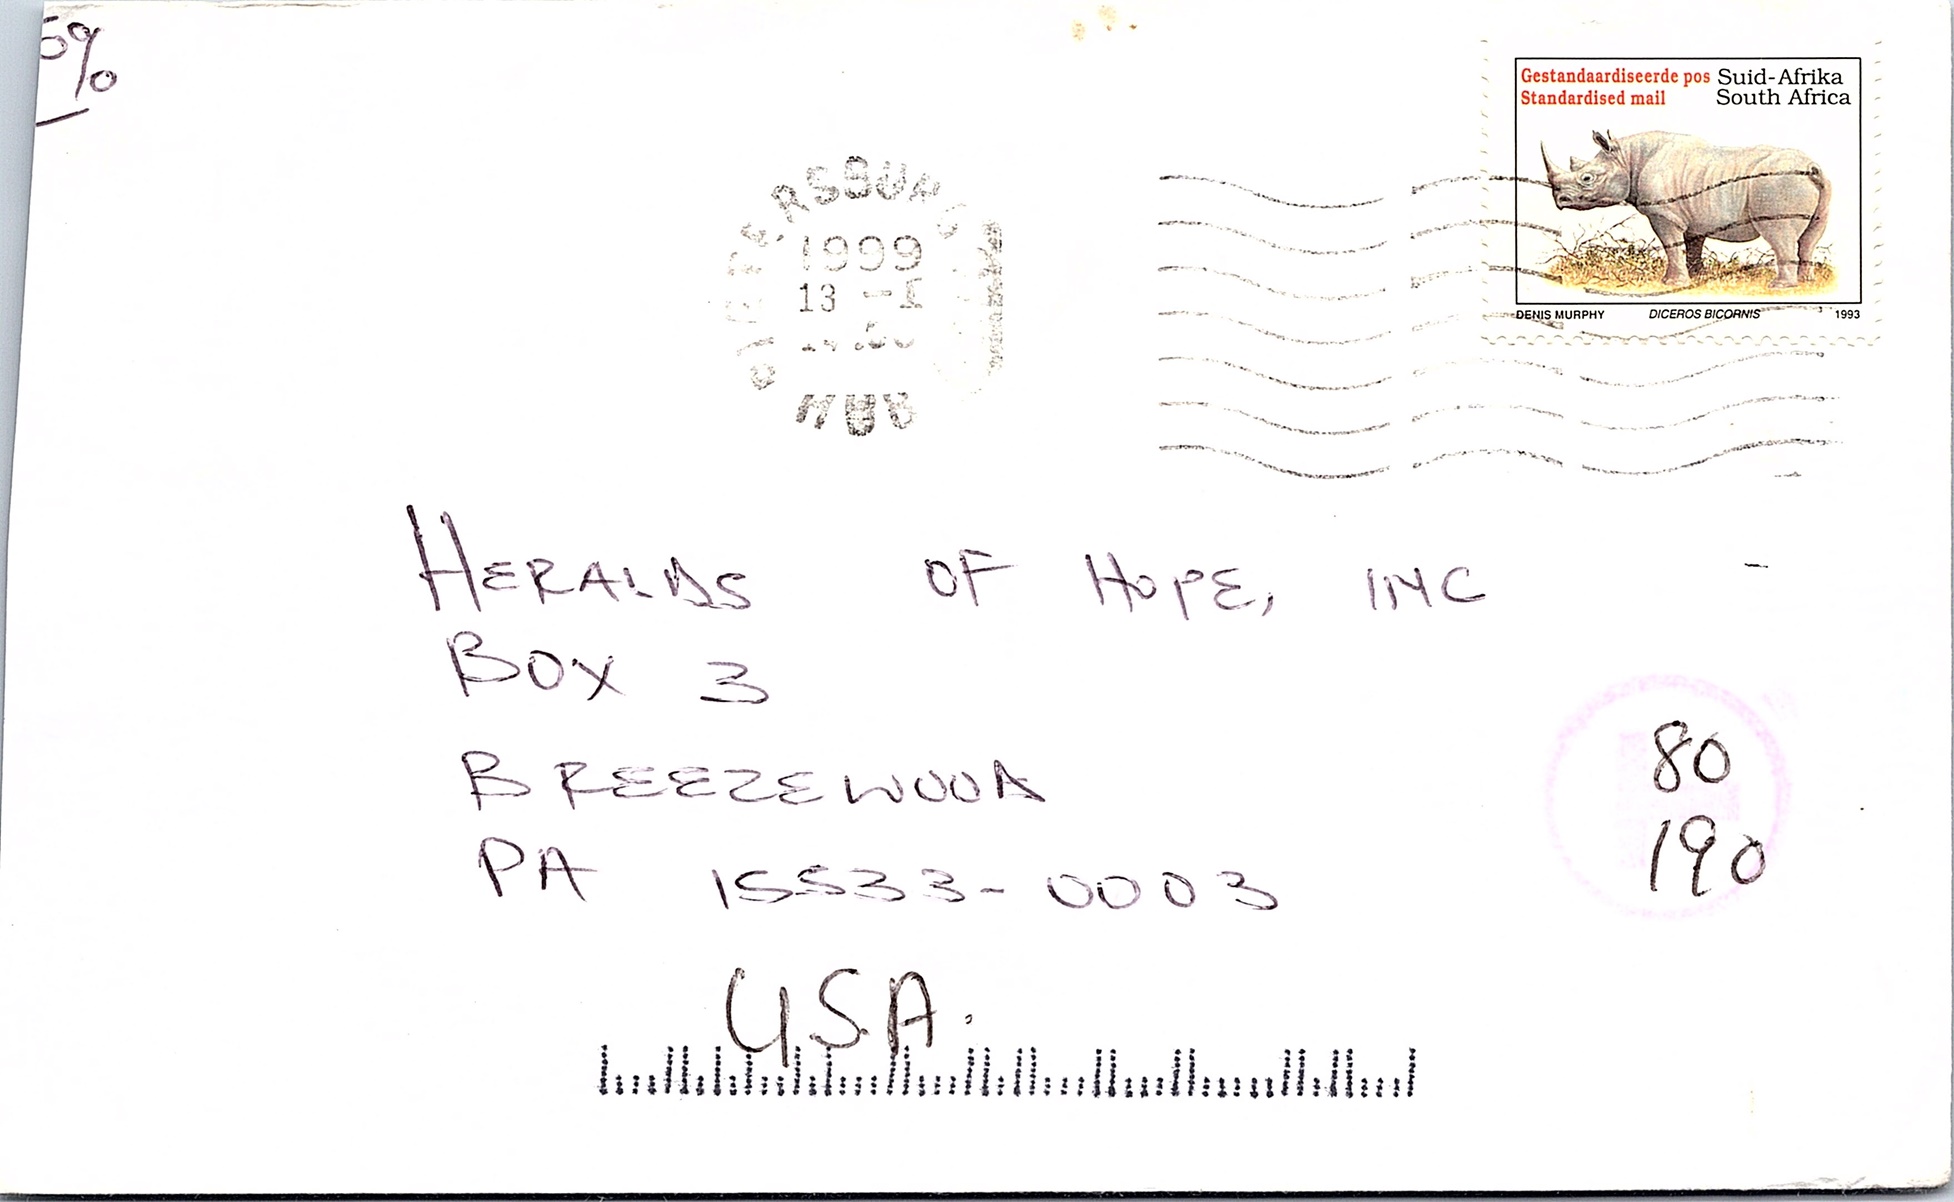 Gestandaardiseerde pos Suid-Afrika
Standardised mail South Africa
1999
13
HUB
DENIS MURPHY DICEROS BICORNIS 1993
HERALDS OF HOPE, INC
BOX 3
BREEZEWOOD
PA 15533-0003
USA.
80
190